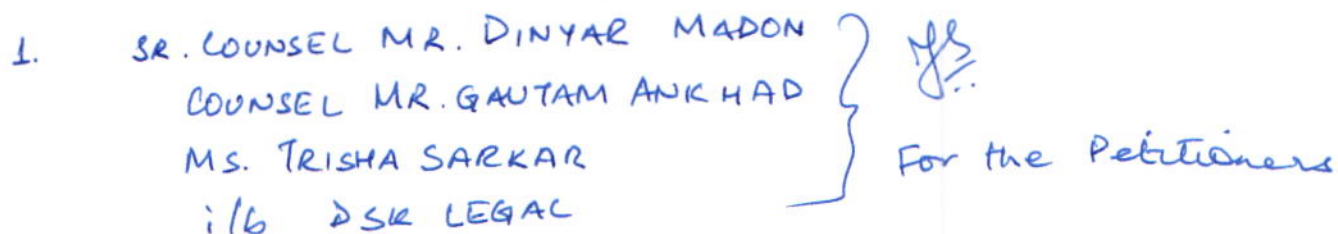 1. SR. COUNSEL MR. DINYAR MADON
COUNSEL MR. GAUTAM ANKHAD
MS. TRISHA SARKAR
i/b DSK LEGAL
For the Petitioners